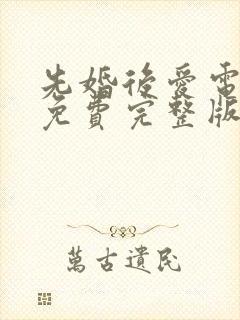 先婚後愛電
免費完整版
萬古遺民